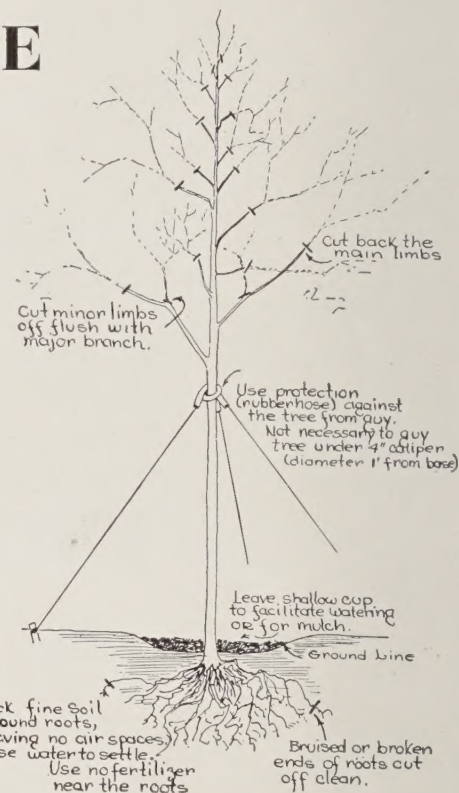 E
Cut back the
main limbs
Cut minor limbs
off flush with
major branch.
Use protection
(rubberhose) against
the tree from guy.
Not necessary to guy
tree under 4" caliper
(diameter 1' from base)
Leave shallow cup
to facilitate watering
OR for mulch.
Ground Line
ck fine soil
ound roots,
aving no air spaces,
se water to settle.
Use no fertilizer
near the roots
Bruised or broken
ends of roots cut
off clean.